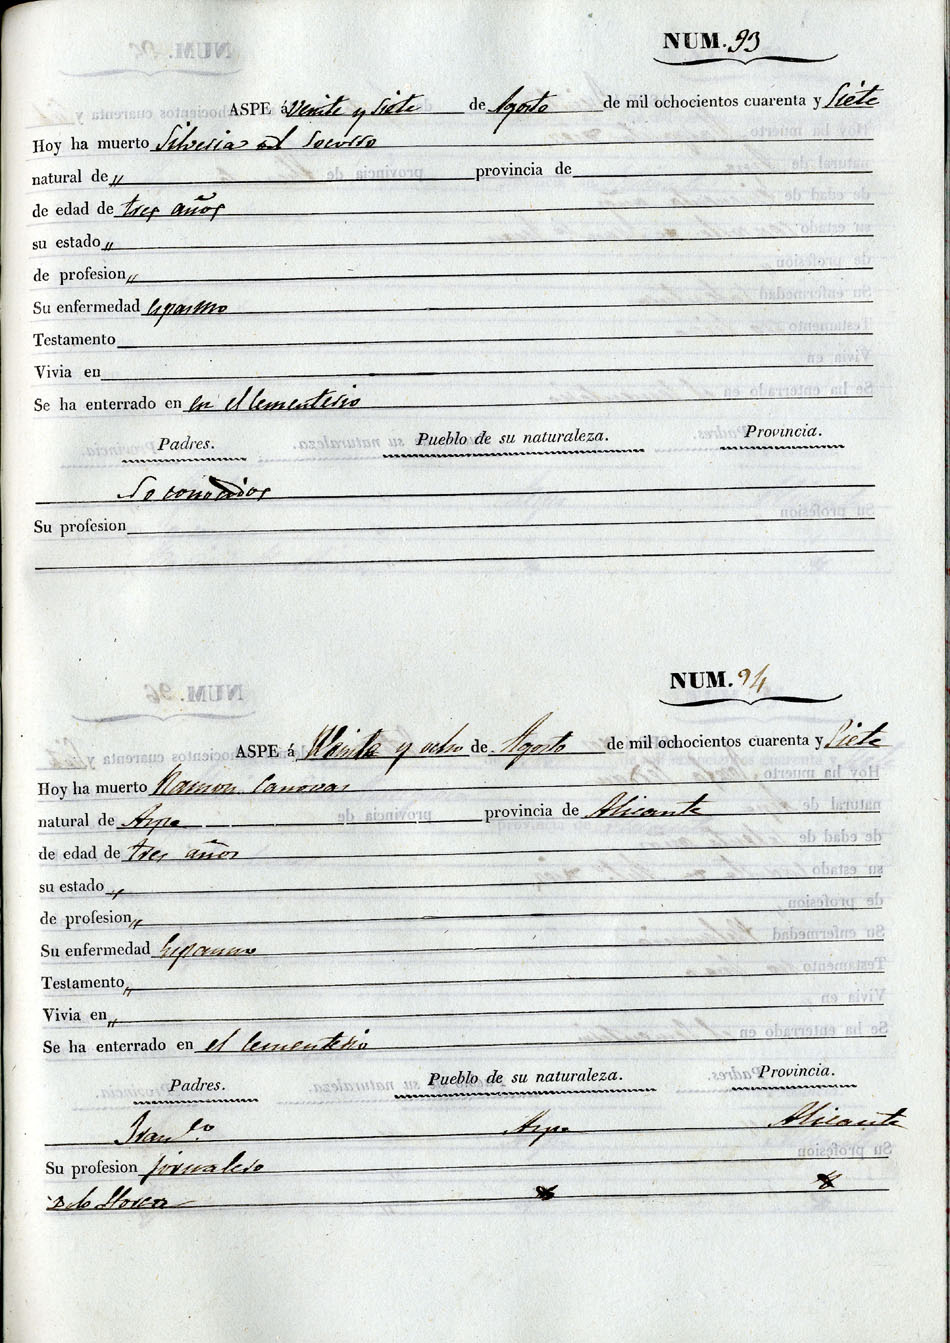 NUM. 93
ASPE á Veinte y Siete de Agosto de mil ochocientos cuarenta y Siete
Hoy ha muerto Silvesia del Socorro
natural de „ provincia de
de edad de tres años
su estado „
de profesion „
Su enfermedad espasmo
Testamento
Vivia en
Se ha enterrado en en el Cementerio
Padres. Pueblo de su naturaleza. Provincia.
No conocidos
Su profesion
NUM. 94
ASPE á Veinte y ocho de Agosto de mil ochocientos cuarenta y Siete
Hoy ha muerto Ramon Canovas
natural de Aspe provincia de Alicante
de edad de tres años
su estado „
de profesion „
Su enfermedad Espasmo
Testamento „
Vivia en „
Se ha enterrado en el Cementerio
Padres. Pueblo de su naturaleza. Provincia.
Fran.co Aspe Alicante
Su profesion jornalero